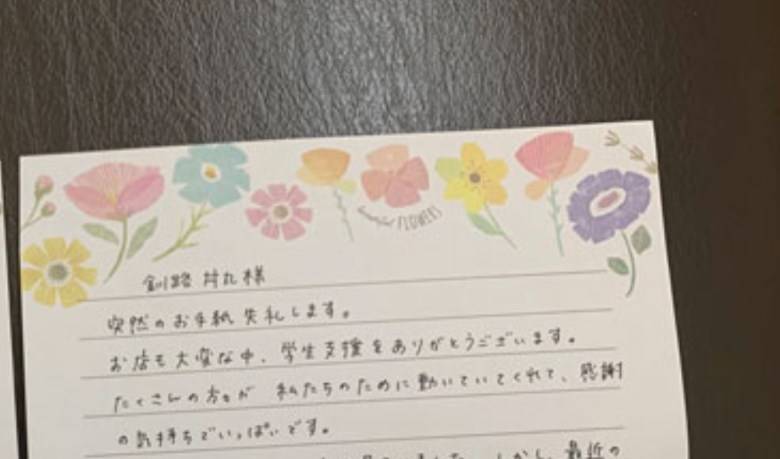 beautiful FLOWERS
釧路 丼丸様
突然のお手紙失礼します。
お店も大変な中、学生支援をありがとうございます。
たくさんの方々が 私たちのために動いていてくれて、感謝
の気持ちでいっぱいです。
しかし、最近の